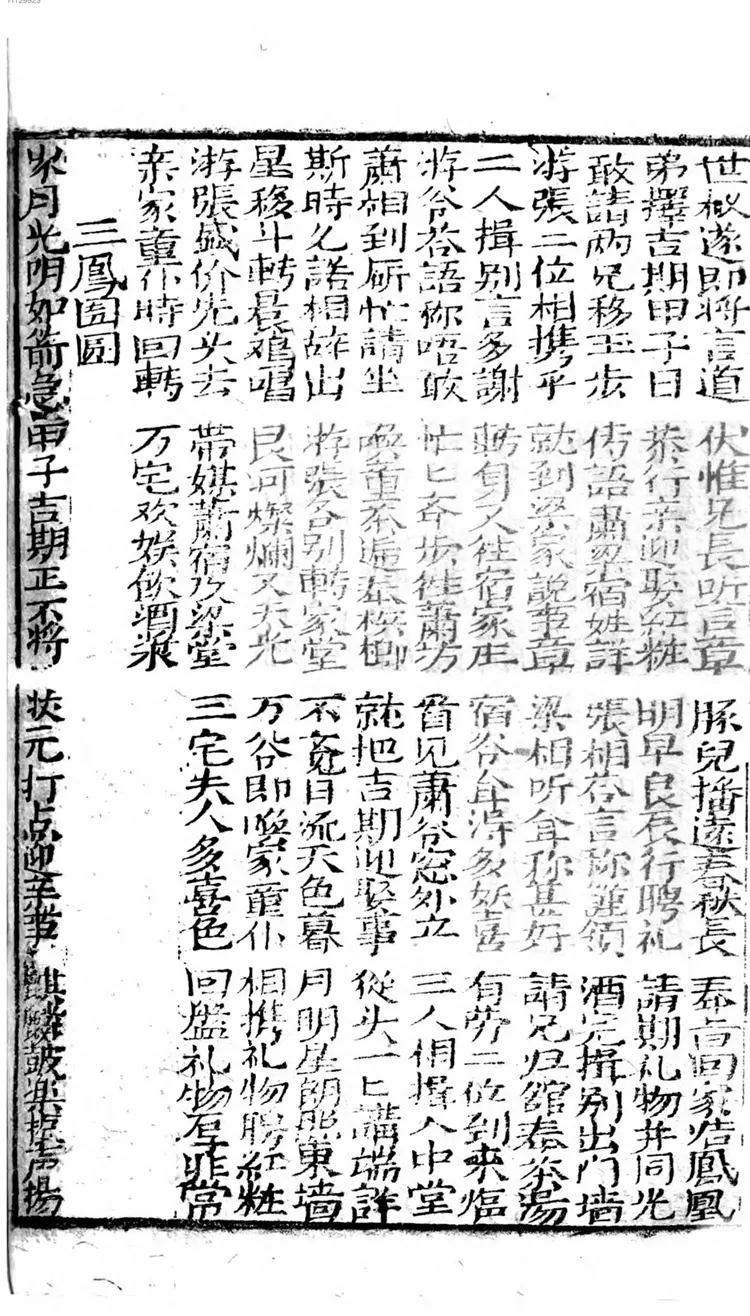 世叔遂即将言道 伏惟兄長听言章 豚兒播遠春秋長 奉旨回家结鳳凰
弟擇吉期甲子日 恭行亲迎娶紅粧 明早良辰行聘礼 請期礼物并同光
敢請兩兄移玉步 传語肅梁宿姓詳 張相荅言称謹領 酒完揖别出門墙
游張二位相携手 就到梁家説事章 梁相听𠇾称甚好 請兄归舘奉茶湯
二人揖别言多謝 轉身又往宿家庄 宿爷𠇾淂多妖喜 有劳二位到來
游爷荅語称唔敢 忙匕奔步徃蕭坊 首见肅爷窓外立 三人相揖入中堂
蕭相到厮忙請坐 喚童奉逅奉梹榔 就把吉期迎娶事 從头一匕講端詳
斯時允諾相辞出 游張各别轉家堂 不覚日流天色暮 月明星朗照東墙
星移斗轉晨鸡唱 艮河燦爛又天光 万爷即喚家童仆 相携礼物聘紅粧
游張盛价先头去 带媒蕭宿及梁堂 三宅夫人多喜色 回盤礼物厚非常
亲家童仆時回轉 万宅欢娱飲酒浆
三鳳团圓
岁月光明如箭急 甲子吉期正不将 状元打点迎亲事 鼓樂 声揚